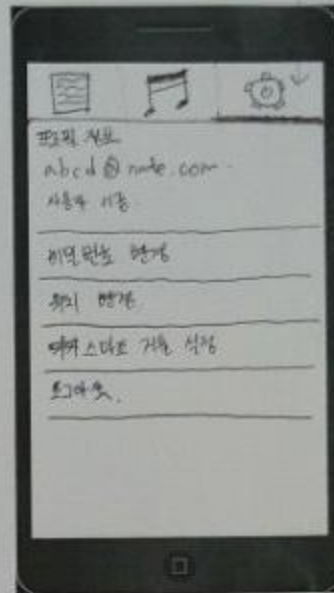 프로필 정보
abcd@nate.com
사용자 이름
비밀번호 변경
위치 변경
스마트 거울 설정
로그아웃.